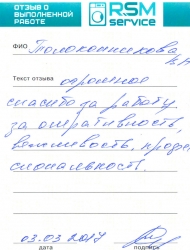 ОТЗЫВ О
ВЫПОЛНЕННОЙ
РАБОТЕ
RSM
service
ФИО Толоконникова
Текст отзыва огромное
спасибо за работу.
за оперативность,
вежливость, профес
сиональность.
03.03.2017
дата подпись